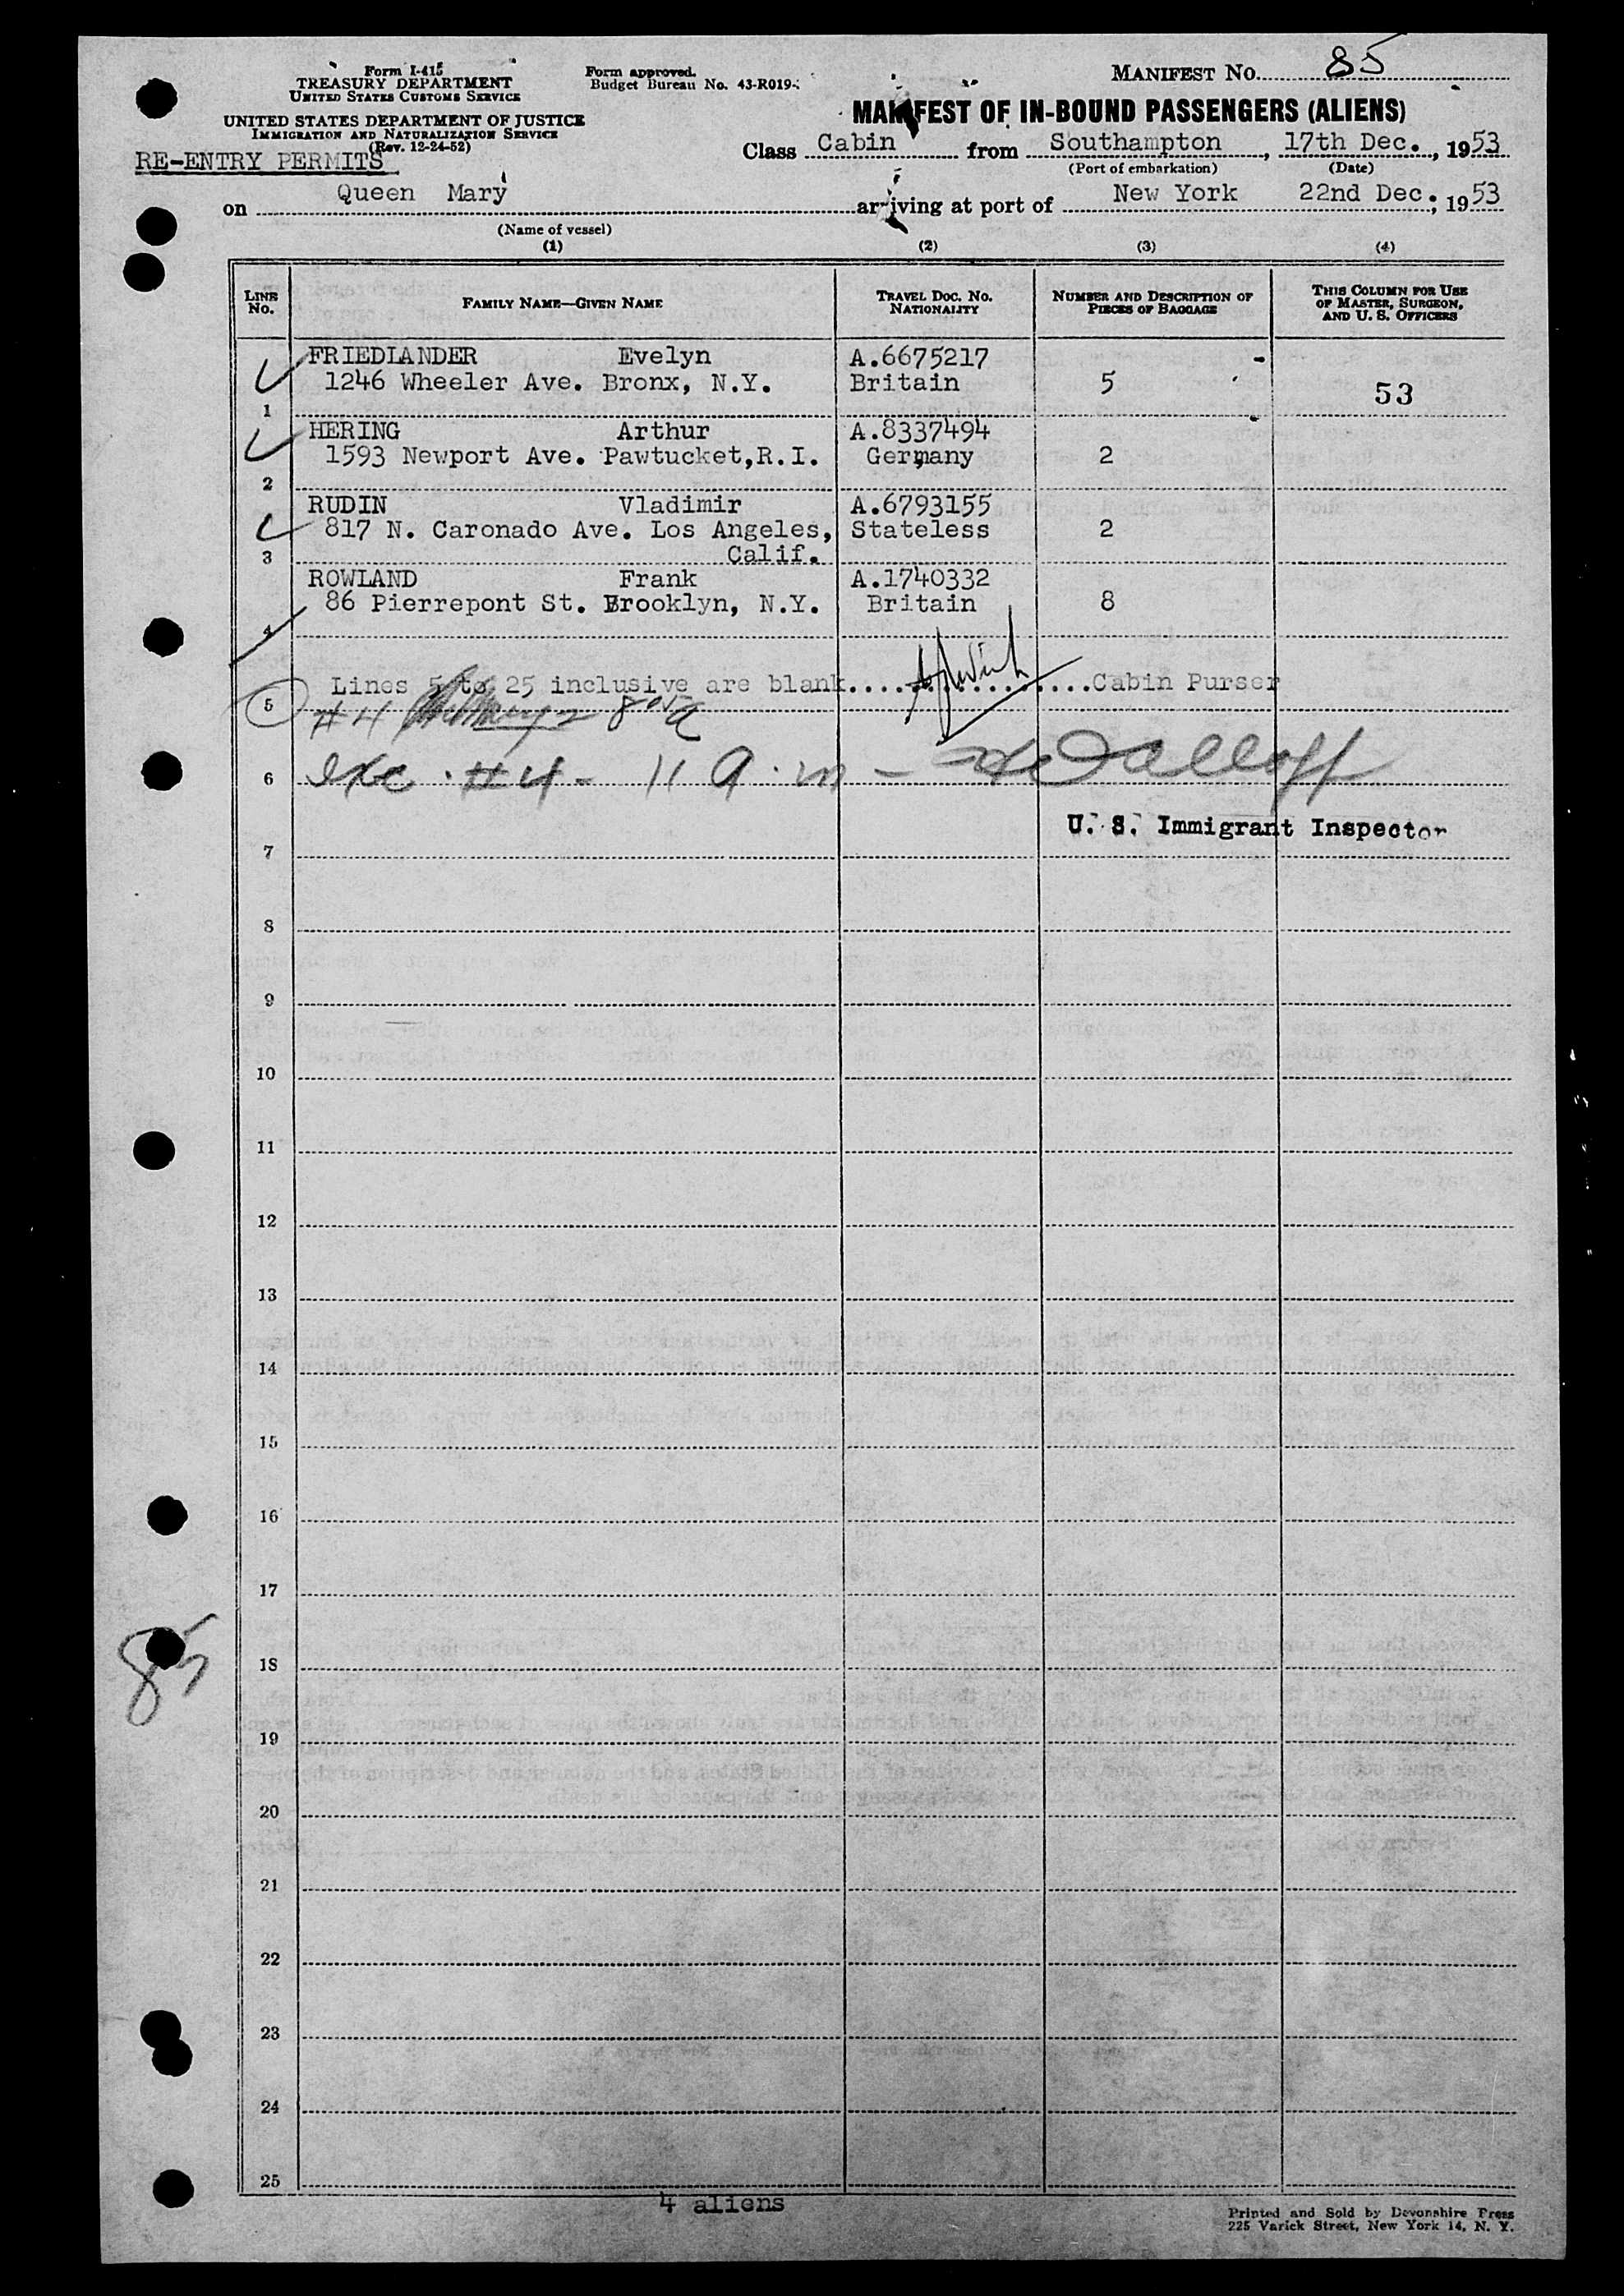 Form I-415
TREASURY DEPARTMENT
UNITED STATES CUSTOMS SERVICE
UNITED STATES DEPARTMENT OF JUSTICE
IMMIGRATION AND NATURALIZATION SERVICE
(Rev. 12-24-52)
RE-ENTRY PERMITS
Form approved.
Budget Bureau No. 43-R019-
MANIFEST NO. 85
MANIFEST OF IN-BOUND PASSENGERS (ALIENS)
Class Cabin from Southampton, 17th Dec., 1953
(Port of embarkation) (Date)
on Queen Mary arriving at port of New York 22nd Dec., 1953
(Name of vessel)
(1) (2) (3) (4)
LINE NO. FAMILY NAME—GIVEN NAME TRAVEL DOC. NO. NATIONALITY NUMBER AND DESCRIPTION OF PIECES OF BAGGAGE THIS COLUMN FOR USE OF MASTER, SURGEON, AND U. S. OFFICERS
FRIEDLANDER Evelyn A.6675217
1246 Wheeler Ave. Bronx, N.Y. Britain 5 53
1
HERING Arthur A.8337494
1593 Newport Ave. Pawtucket,R.I. Germany 2
2
RUDIN Vladimir A.6793155
817 N. Caronado Ave. Los Angeles, Stateless 2
3 Calif.
ROWLAND Frank A.1740332
86 Pierrepont St. Brooklyn, N.Y. Britain 8
4
Lines 5 to 25 inclusive are blank..................Cabin Purser
5
#4
6 exc. #4 - 11 a.m -
U. S. Immigrant Inspector
7
8
9
10
11
12
13
14
15
16
17
85
18
19
20
21
22
23
24
25
4 aliens
Printed and Sold by Devonshire Press
225 Varick Street, New York 14, N. Y.